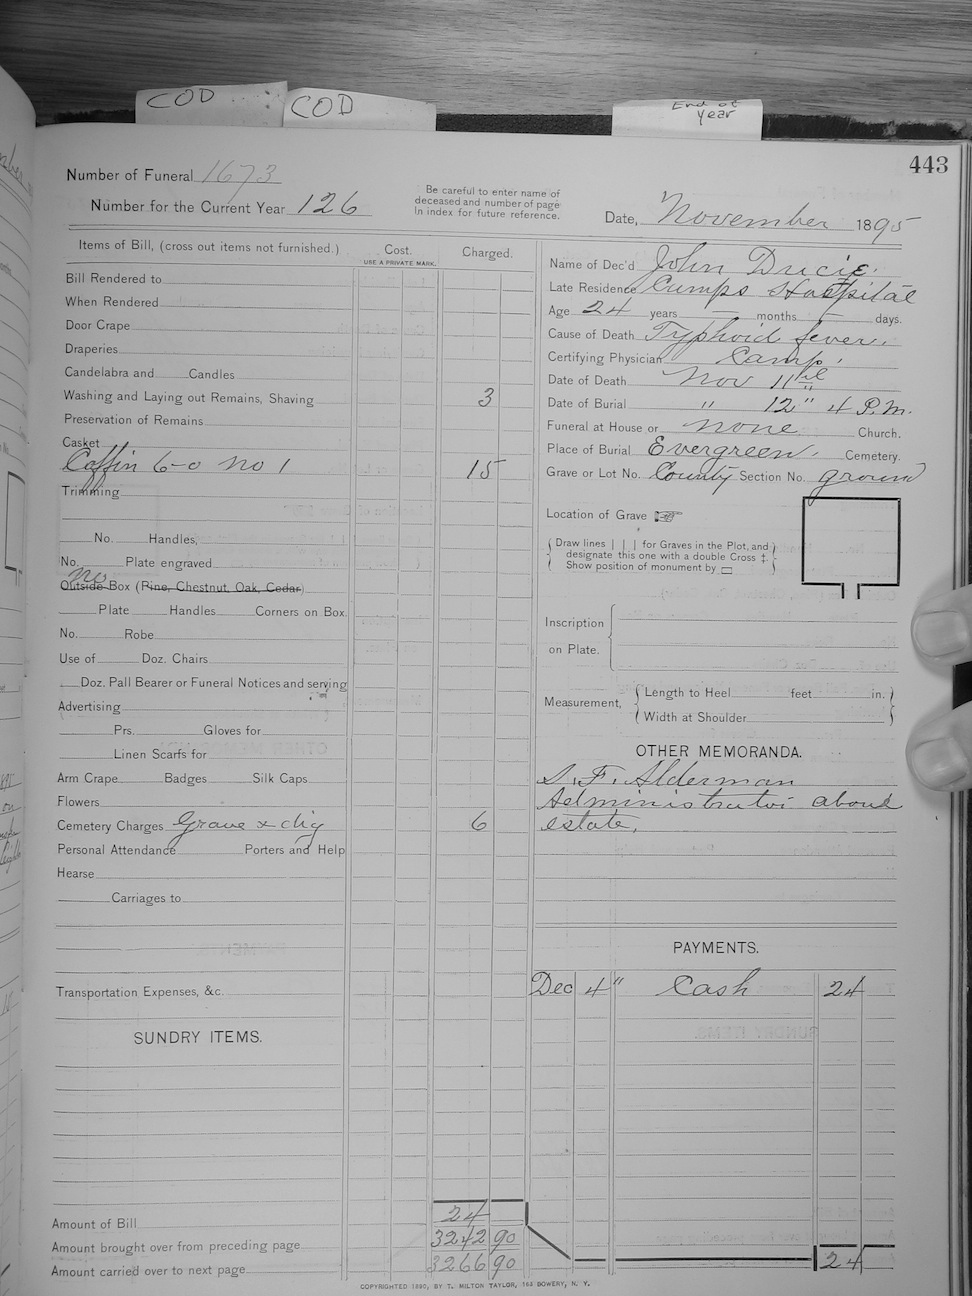 COD
COD
End of
year
443
Number of Funeral 1673
Number for the Current Year 126
Be careful to enter name of
deceased and number of page
In index for future reference.
Date, November 1895
Items of Bill, (cross out items not furnished.) Cost. Charged.
USE A PRIVATE MARK.
Bill Rendered to
When Rendered
Door Crape
Draperies
Candelabra and Candles
Washing and Laying out Remains, Shaving 3
Preservation of Remains
Casket
Coffin 6-0 no 1 15
Trimming
No. Handles,
No. Plate engraved
no
Outside Box (Pine, Chestnut, Oak, Cedar)
Plate Handles Corners on Box
No. Robe
Use of Doz. Chairs
Doz. Pall Bearer or Funeral Notices and serving
Advertising
Prs. Gloves for
Linen Scarfs for
Arm Crape Badges Silk Caps
Flowers
Cemetery Charges Grave & dig 6
Personal Attendance Porters and Help
Hearse
Carriages to
Transportation Expenses, &c.
SUNDRY ITEMS.
Amount of Bill 24
Amount brought over from preceding page 3242 90
Amount carried over to next page 3266 90
Name of Dec'd John Ducie
Late Residence Camps Hospital
Age 24 years — months — days.
Cause of Death Typhoid fever.
Certifying Physician Camp.
Date of Death Nov 11th
Date of Burial " 12" 4 P.M.
Funeral at House or none Church.
Place of Burial Evergreen. Cemetery.
Grave or Lot No. County Section No. ground
Location of Grave
Draw lines | | | for Graves in the Plot, and
designate this one with a double Cross ‡.
Show position of monument by
Inscription
on Plate.
Measurement, Length to Heel feet in.
Width at Shoulder
OTHER MEMORANDA.
S. F. Alderman
Administrator above
estate.
PAYMENTS.
Dec 4" Cash 24
24
COPYRIGHTED 1890, BY T. MILTON TAYLOR, 163 BOWERY, N. Y.